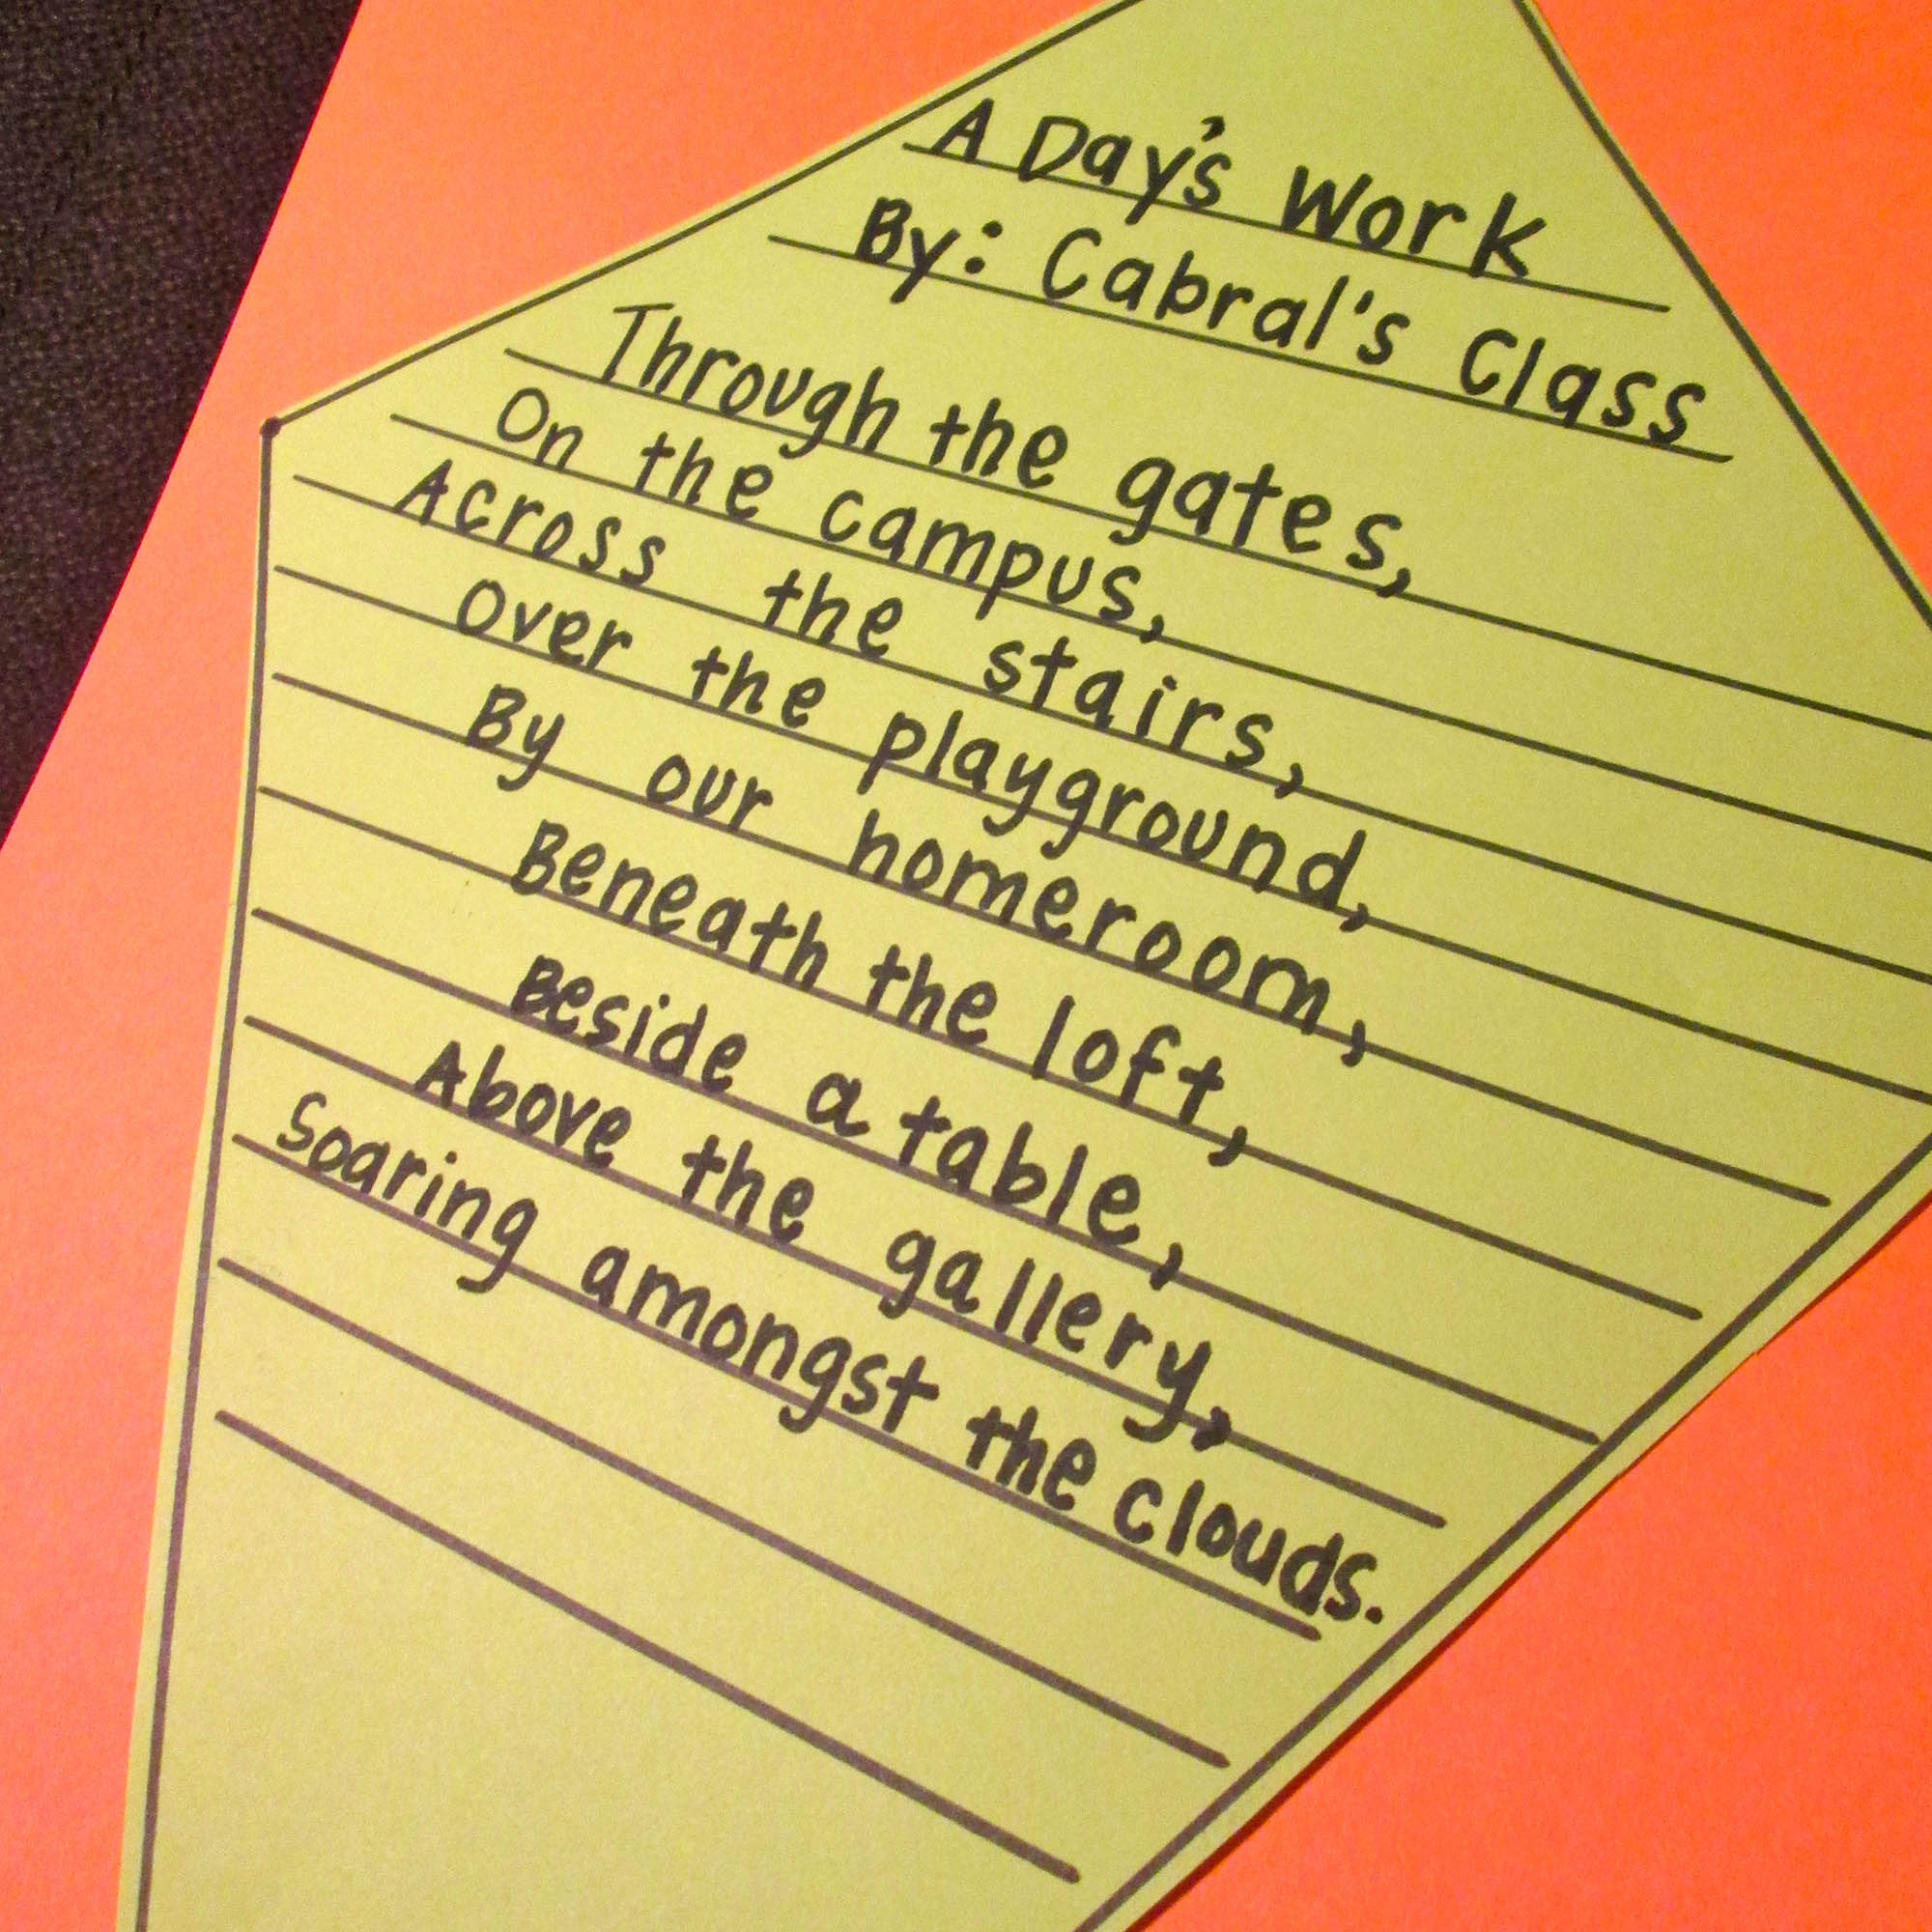 A Day's Work
By: Cabral's Class
Through the gates,
On the campus,
Across the stairs,
Over the playground,
By our homeroom,
Beneath the loft,
Beside a table,
Above the gallery,
Soaring amongst the clouds.